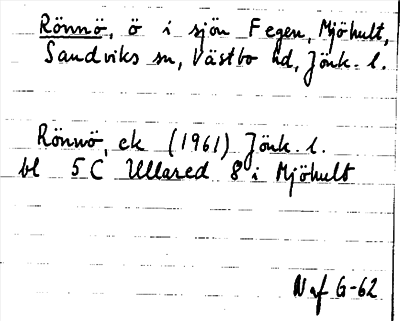 Rönnö, ö i sjön Fegen, Mjöhult,
Sandviks sn, Västbo hd, Jönk. l.
Rönnö, ek (1961) Jönk. l.
bl 5 C Ullared 8 i Mjöhult
N af G-62